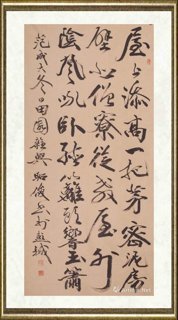 屋上添高一把茅密泥房
壁似僧寮從教屋外
陰風吼卧聽籬頭響玉簫
范成大冬日田園雜興